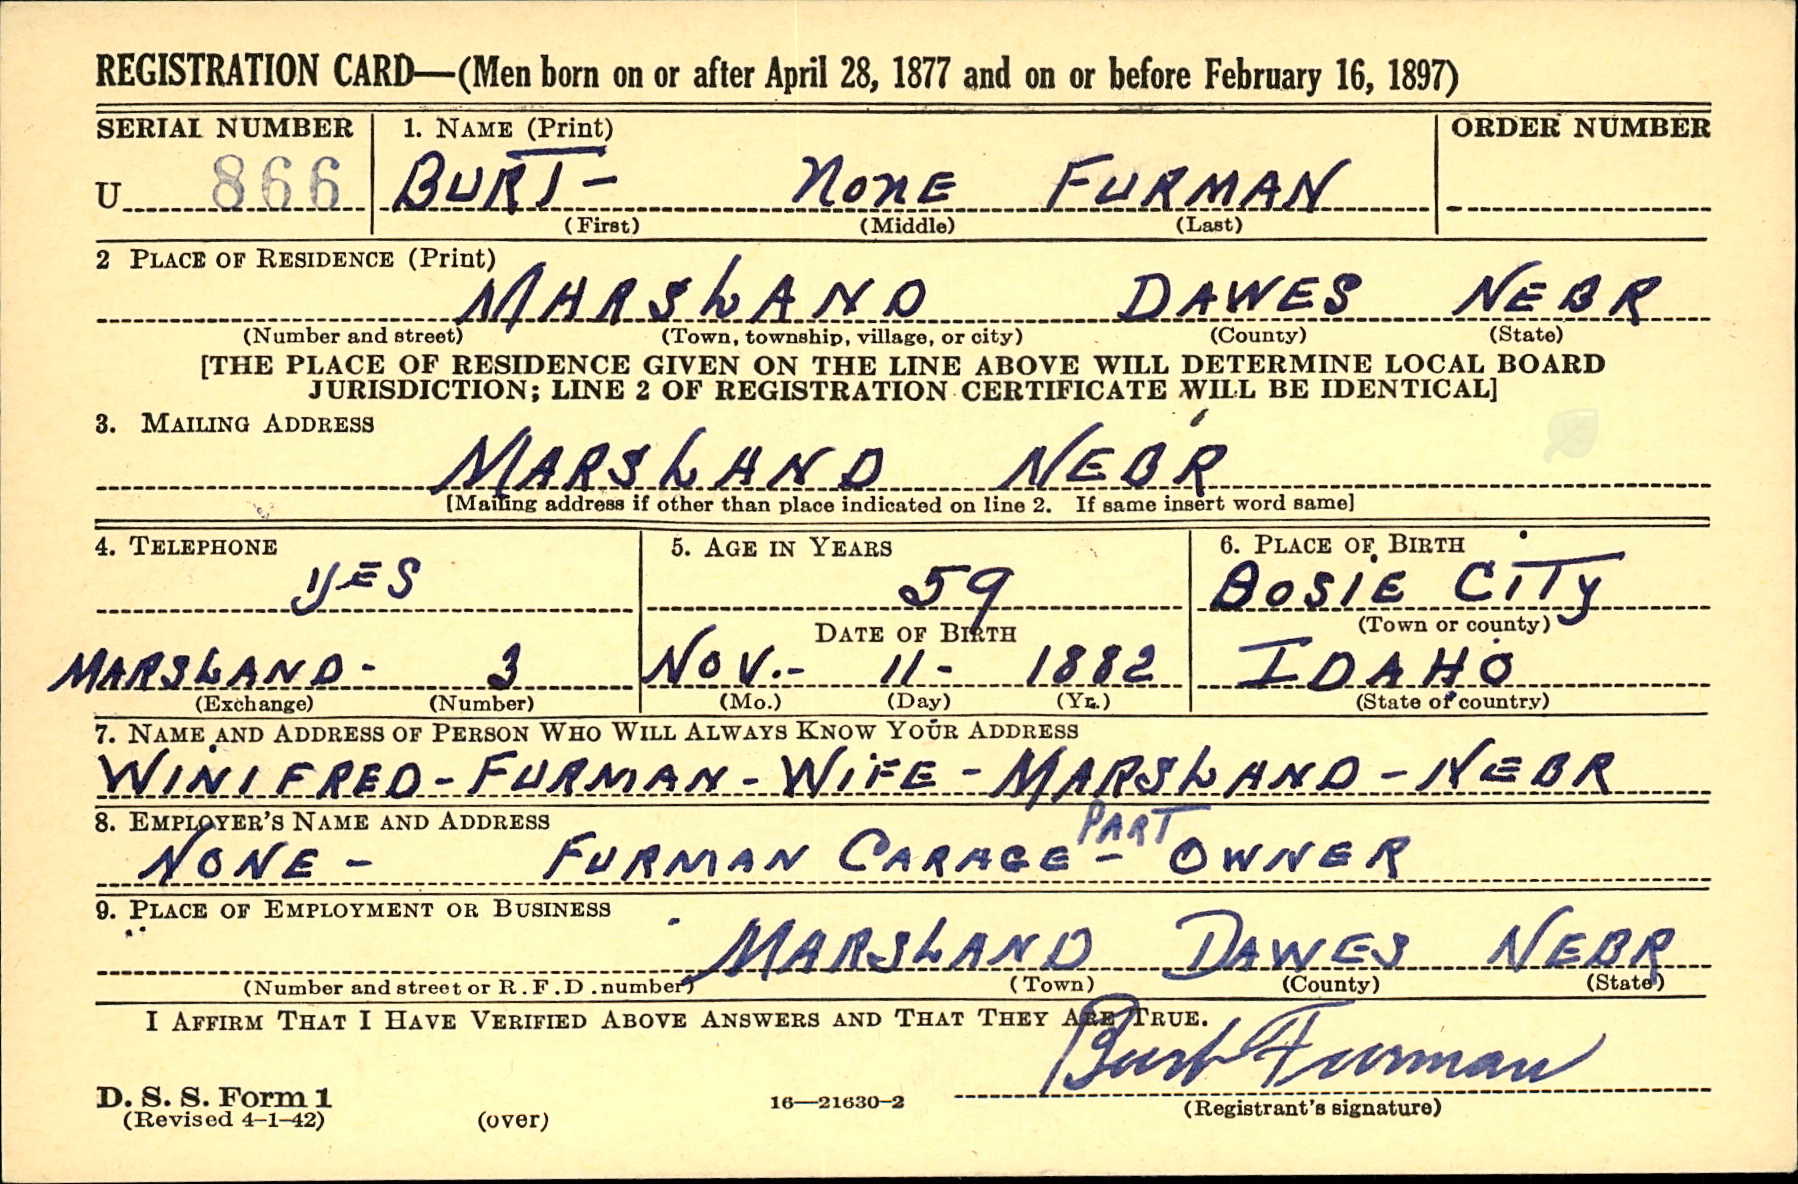 REGISTRATION CARD—(Men born on or after April 28, 1877 and on or before February 16, 1897)
SERIAL NUMBER 1. NAME (Print) ORDER NUMBER
U 866 BURT - NONE FURMAN
(First) (Middle) (Last)
2 PLACE OF RESIDENCE (Print)
MARSLAND DAWES NEBR
(Number and street) (Town, township, village, or city) (County) (State)
[THE PLACE OF RESIDENCE GIVEN ON THE LINE ABOVE WILL DETERMINE LOCAL BOARD
JURISDICTION; LINE 2 OF REGISTRATION CERTIFICATE WILL BE IDENTICAL]
3. MAILING ADDRESS
MARSLAND NEBR
[Mailing address if other than place indicated on line 2. If same insert word same]
4. TELEPHONE 5. AGE IN YEARS 6. PLACE OF BIRTH
YES 59 BOSIE CITY
DATE OF BIRTH (Town or county)
MARSLAND - 3 NOV. - 11 - 1882 IDAHO
(Exchange) (Number) (Mo.) (Day) (Yr.) (State or country)
7. NAME AND ADDRESS OF PERSON WHO WILL ALWAYS KNOW YOUR ADDRESS
WINIFRED - FURMAN - WIFE - MARSLAND - NEBR
8. EMPLOYER'S NAME AND ADDRESS
PART
NONE - FURMAN CARAGE - OWNER
9. PLACE OF EMPLOYMENT OR BUSINESS
MARSLAND DAWES NEBR
(Number and street or R.F.D. number) (Town) (County) (State)
I AFFIRM THAT I HAVE VERIFIED ABOVE ANSWERS AND THAT THEY ARE TRUE.
Burt Furman
D. S. S. Form 1
(Revised 4-1-42) (over) 16—21630-2 (Registrant's signature)